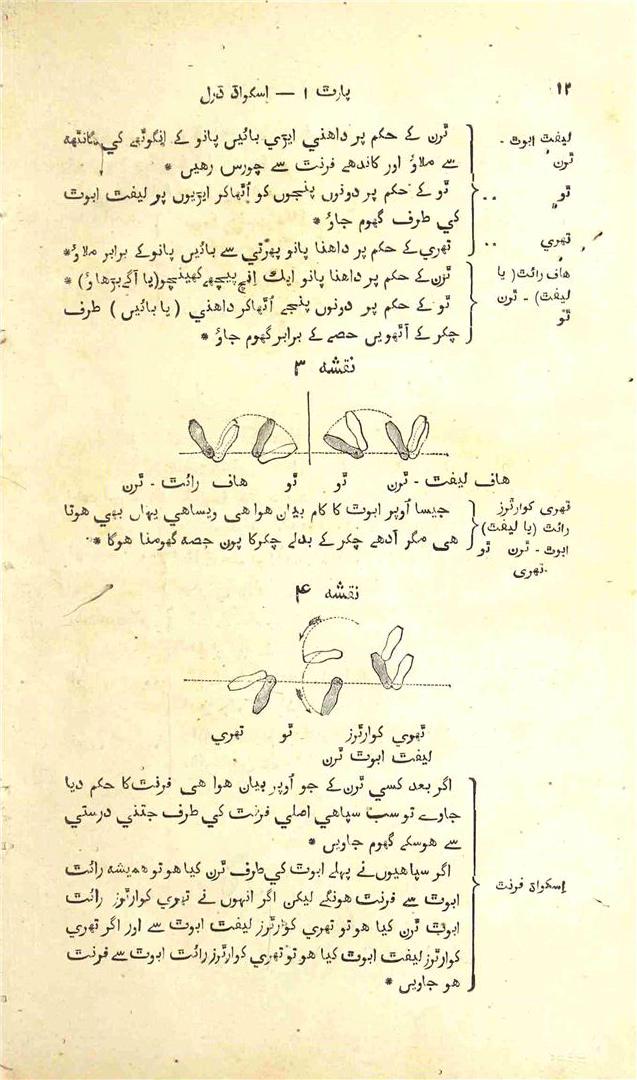 ۱۲
پارٹ ۱ — اسکواڈ ڈرل
لیفٹ ابوٹ -
ٹرن
ٹرن کے حکم پر داهني ایڑي بائیں پانو کے انگوٹھے کي گانٹھه
سے ملاؤ اور کاندھے فرنٹ سے چورس رهیں *
ٹو ..
ٹو کے حکم پر دونوں پنجوں کو اُٹھاکر ایڑیوں پر لیفٹ ابوٹ
کي طرف گھوم جاؤ *
تھري ..
تھري کے حکم پر داهنا پانو پھرتي سے بائیں پانوکے برابر ملاؤ *
هاف رائٹ (یا
لیفٹ) - ٹرن
ٹو
ٹرن کے حکم پر داهنا پانو ایك انچ پیچھے کھینچو (یا آگے بڑھاؤ) *
ٹو کے حکم پر دونوں پنجے اُٹھاکر داهني (یا بائیں) طرف
چکر کے آٹھویں حصے کے برابر گھوم جاؤ *
نقشه ۳
هاف لیفٹ - ٹرن ٹو ٹو هاف رائٹ - ٹرن
تھري کوارٹرز
رائٹ (یا لیفٹ)
ابوٹ - ٹرن ٹو
تھري
جیسا اُوپر ابوٹ کا کام بیان هوا هی ویساهي یہاں بھي هوتا
هی مگر آدھے چکر کے بدلے چکرکا پون حصه گھومنا هوگا *
نقشه ۴
تھري کوارٹرز ٹو تھري
لیفٹ ابوٹ ٹرن
اسکواڈ فرنٹ
اگر بعد کسي ٹرن کے جو اُوپر بیان هوا هی فرنٹ کا حکم دیا
جاوے تو سب سپاهي اصلي فرنٹ کي طرف جتني درستي
سے هوسکے گھوم جاویں *
اگر سپاهیوں نے پہلے ابوٹ کي طرف ٹرن کیا هو تو همیشه رائٹ
ابوٹ سے فرنٹ هونگے لیکن اگر انہوں نے تھري کوارٹرز رائٹ
ابوٹ ٹرن کیا هو تو تھري کوارٹرز لیفٹ ابوٹ سے اور اگر تھري
کوارٹرز لیفٹ ابوٹ کیا هو تو تھري کوارٹرز رائٹ ابوٹ سے فرنٹ
هو جاویں *